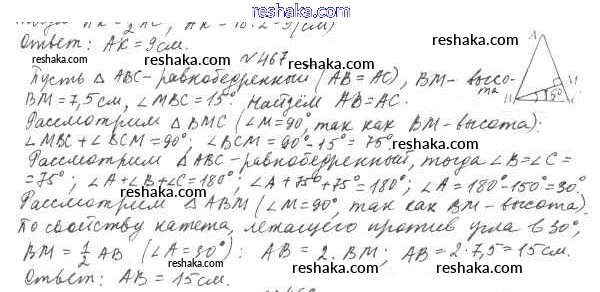 reshaka.com
AK = 1/2 AC, AK = 18:2=9 (см)
Ответ: AK = 9см. reshaka.com
№467
Пусть △ ABC - равнобедренный (AB = AC), BM - высо-
та
BM = 7,5 см, ∠MBC = 15°. Найдём AB = AC.
Рассмотрим △ BMC (∠M = 90°, так как BM - высота):
∠MBC + ∠BCM = 90°; ∠BCM = 90° - 15° = 75°.
Рассмотрим △ ABC - равнобедренный, тогда ∠B = ∠C =
= 75°; ∠A + ∠B + ∠C = 180°; ∠A + 75° + 75° = 180°; ∠A = 180° - 150° = 30°.
Рассмотрим △ ABM (∠M = 90°, так как BM - высота).
По свойству катета, лежащего против угла в 30°,
BM = 1/2 AB (∠A = 30°): AB = 2·BM; AB = 2·7,5 = 15см.
Ответ: AB = 15 см.
A
M
B
15°
C
reshaka.com
reshaka.com
reshaka.com
reshaka.com
reshaka.com
reshaka.com
reshaka.com
reshaka.com
reshaka.com
reshaka.com
reshaka.com
reshaka.com